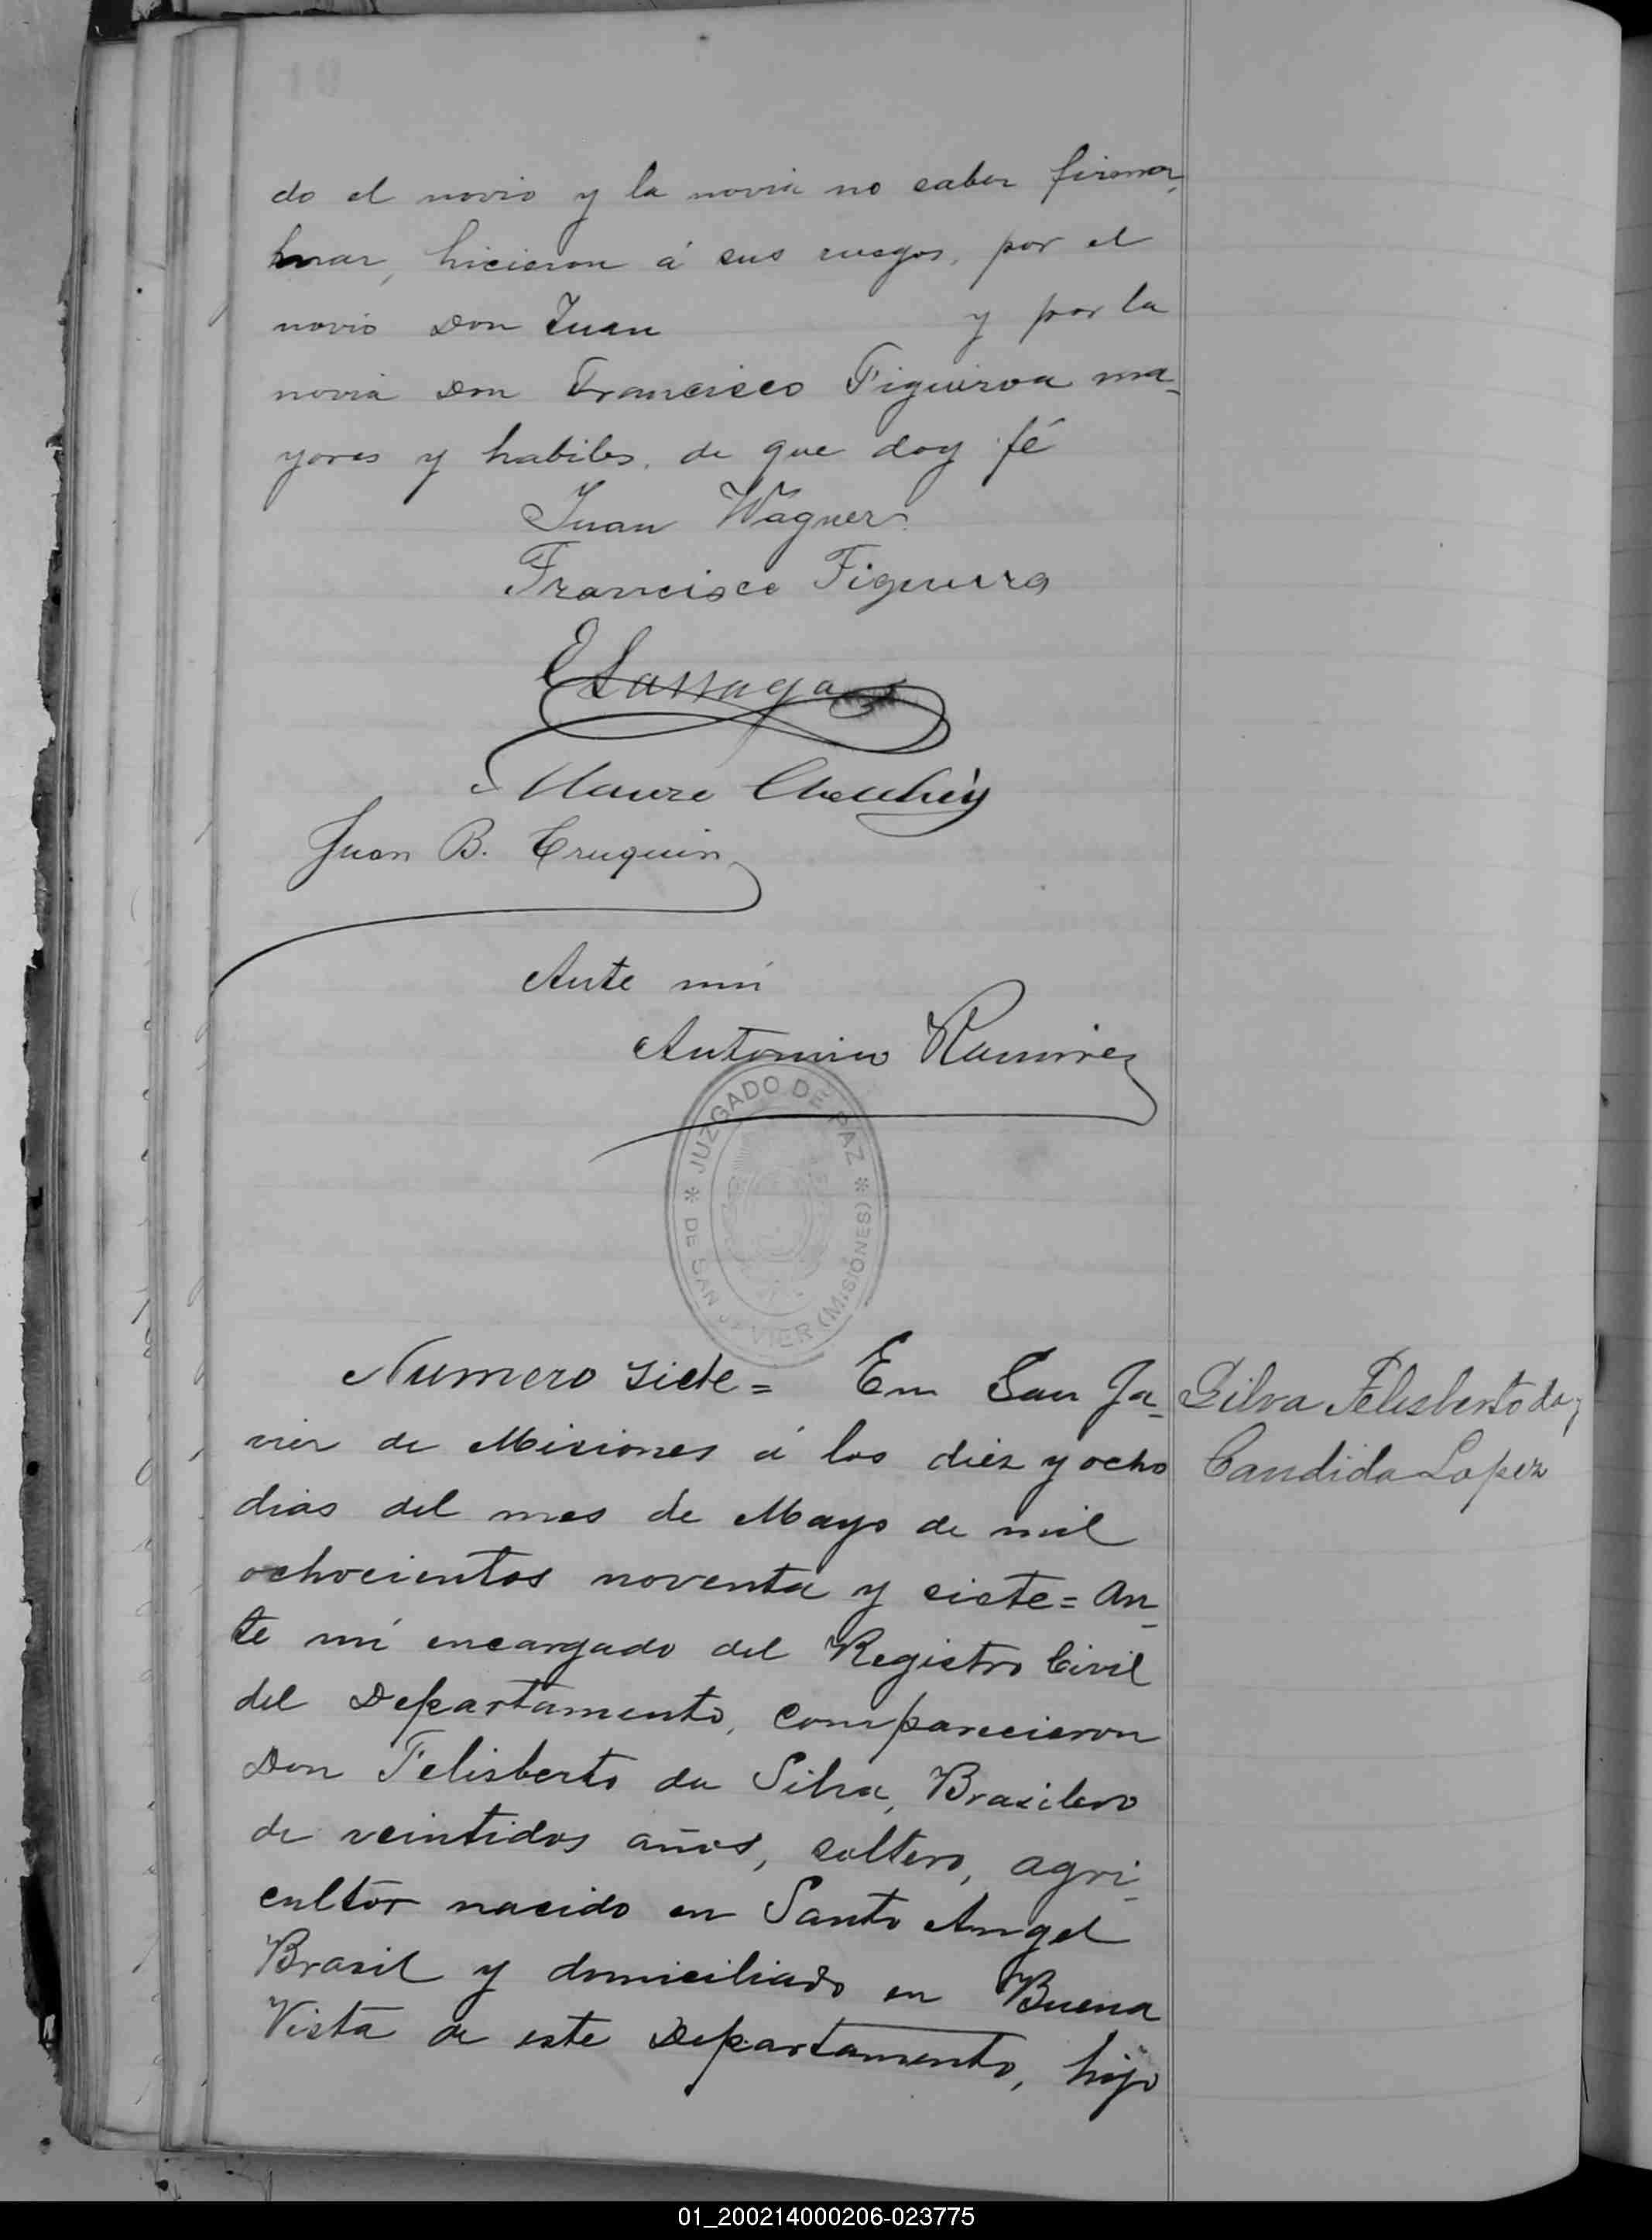 do el novio y la novia no saber firmar,
hicieron á sus ruegos, por el
novio Don Juan y por la
novia Don Francisco Figueroa ma-
yores y habiles, de que doy fé
Juan Wagner
Francisco Figueira
Mauro
Juan B.
Ante mí
Antonino Ramirez
JUZGADO DE PAZ * DE SAN JAVIER (MISIONES) *
Numero siete = En San Ja-
vier de Misiones á los diez y ocho
dias del mes de Mayo de mil
ochocientos noventa y siete = An-
te mí encargado del Registro Civil
del Departamento, comparecieron
Don Felisberto da Silva, Brasilero
de veintidos años, soltero, agri-
cultor nacido en Santo Angel
Brasil y domiciliado en Buena
Vista de este Departamento, hijo
Silva Felisberto da y
Candida Lopez
01_200214000206-023775